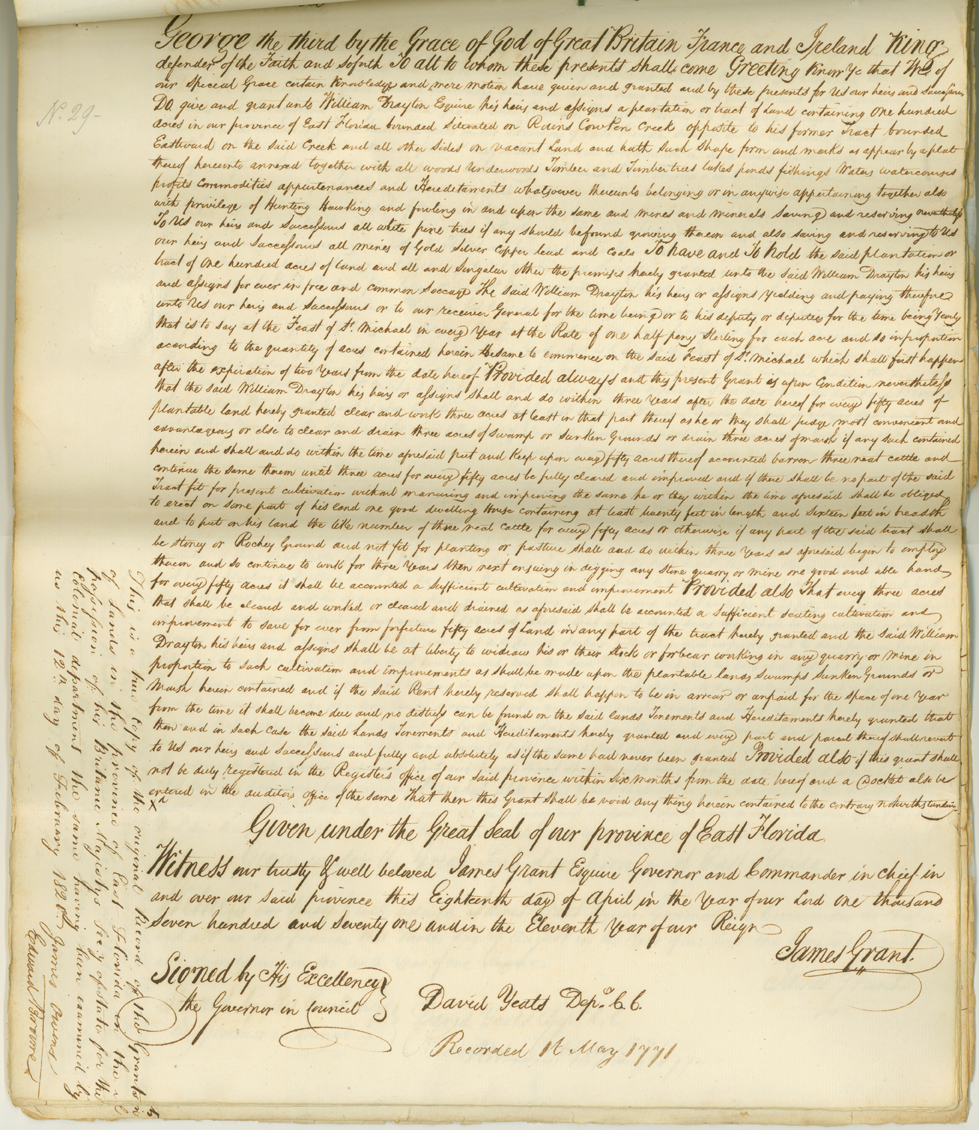 N. 29-
George the third by the Grace of God of Great Britain France and Ireland King
defender of the Faith and soforth To all to whom these presents shall come Greeting Know Ye that We of
our special Grace certain Knowledge and mere motion have given and granted and by these presents for Us our heirs and Successors
Do give and grant unto William Drayton Esquire his heirs and assigns a plantation or tract of Land containing One hundred
acres in our province of East Florida bounded Situated on Cowton Creek opposite to his former Tract bounded
Eastward on the Said Creek and all other Sides on vacant Land and hath such Shape form and marks as appear by a plat
thereof hereunto annexed together with all woods Underwoods Timber and Timbertrees lakes ponds fishings Waters watercourses
profits Commodities appurtenances and Hereditaments whatsoever thereunto belonging or in anywise appertaining together also
with privilege of Hunting Hawking and fowling in and upon the same and mines and minerals Saving and reserving nevertheless
To Us our heirs and Successours all white pine trees if any should be found growing thereon and also saving and reserving to Us
our heirs and Successours all mines of Gold Silver Copper Lead and Coals To have and To hold the said plantation or
tract of One hundred acres of land and all and Singular other the premises hereby granted unto the Said William Drayton his heirs
and assigns for ever in free and common Soccage The said William Drayton his heirs or assigns Yielding and paying therefore
unto Us our heirs and Successours or to our receiver General for the time being or to his deputy or deputies for the time being Yearly
that is to say at the Feast of St. Michael in every Year at the Rate of one half peny Sterling for each acre and so in proportion
according to the quantity of acres contained herein the same to commence on the said Feast of St. Michael which shall first happen
after the expiration of two Years from the date hereof Provided always and this present Grant is upon Condition nevertheless
that the said William Drayton his heirs or assigns shall and do within three Years after the date hereof for every fifty acres of
plantable land hereby granted clear and work three acres at least in that part thereof as he or they shall judge most convenient and
advantageous or else to clear and drain three acres of swamp or Sunken Grounds or drain three acres of marsh if any such contained
herein and shall and do within the time aforesaid put and Keep upon every fifty acres thereof accounted barren three neat cattle and
continue the same thereon until three acres for every fifty acres be fully cleared and improved and if there shall be no part of the said
Tract fit for present cultivation without manuring and improving the same he or they within the time aforesaid shall be obliged
to erect on some part of his land one good dwelling House containing at least twenty feet in length and Sixteen feet in breadth
and to put on his land the like number of three neat Cattle for every fifty acres or otherwise if any part of the said tract shall
be Stoney or Rockey Ground and not fit for planting or pasture shall and do within three Years as aforesaid begin to employ
thereon and so continue to work for three Years then next ensuing in digging any stone quarry or mine one good and able hand
for every fifty acres it shall be accounted a Sufficient cultivation and improvement Provided also That every three acres
that shall be cleared and worked or cleared and drained as aforesaid shall be accounted a Sufficient seating cultivation and
improvement to save for ever from forfeiture fifty acres of Land in any part of the tract hereby granted and the said William
Drayton his heirs and assigns shall be at liberty to widraw his or their Stock or forbear working in any quarry or mine in
proportion to such cultivation and improvements as shall be made upon the plantable Lands Swamps Sunken Grounds or
Marsh herein contained and if the said Rent hereby reserved shall happen to be in arrear or unpaid for the space of one Year
from the time it shall become due and no distress can be found on the said lands Tenements and Hereditaments hereby granted that
then and in such Case the said Lands Tenements and Hereditaments hereby granted and every part and parcel thereof shall revert
to Us our heirs and Successours and fully and absolutely as if the same had never been granted Provided also if this grant shall
not be duly registered in the Register's office of our said province within Six months from the date hereof and a Docket also be
entered in the auditors office of the same That then this Grant shall be void any thing herein contained to the contrary notwithstanding
Given under the Great Seal of our province of East Florida
Witness our trusty & well beloved James Grant Esquire Governor and Commander in chief in
and over our said province this Eighteenth day of April in the Year of our Lord one thousand
Seven hundred and Seventy one and in the Eleventh Year of our Reign
James Grant
Signed by His Excellency
the Governor in Council
David Yeats Depy. C. C.
Recorded 16 May 1771
This is a true Copy of the original Record of the Grants
of Lands in the province of East Florida in the
possession of his Britannic Majestys Secy of state for the
Colonial department the same having been examined by
us this 12th day of February 182
James Owens
Edward Browne